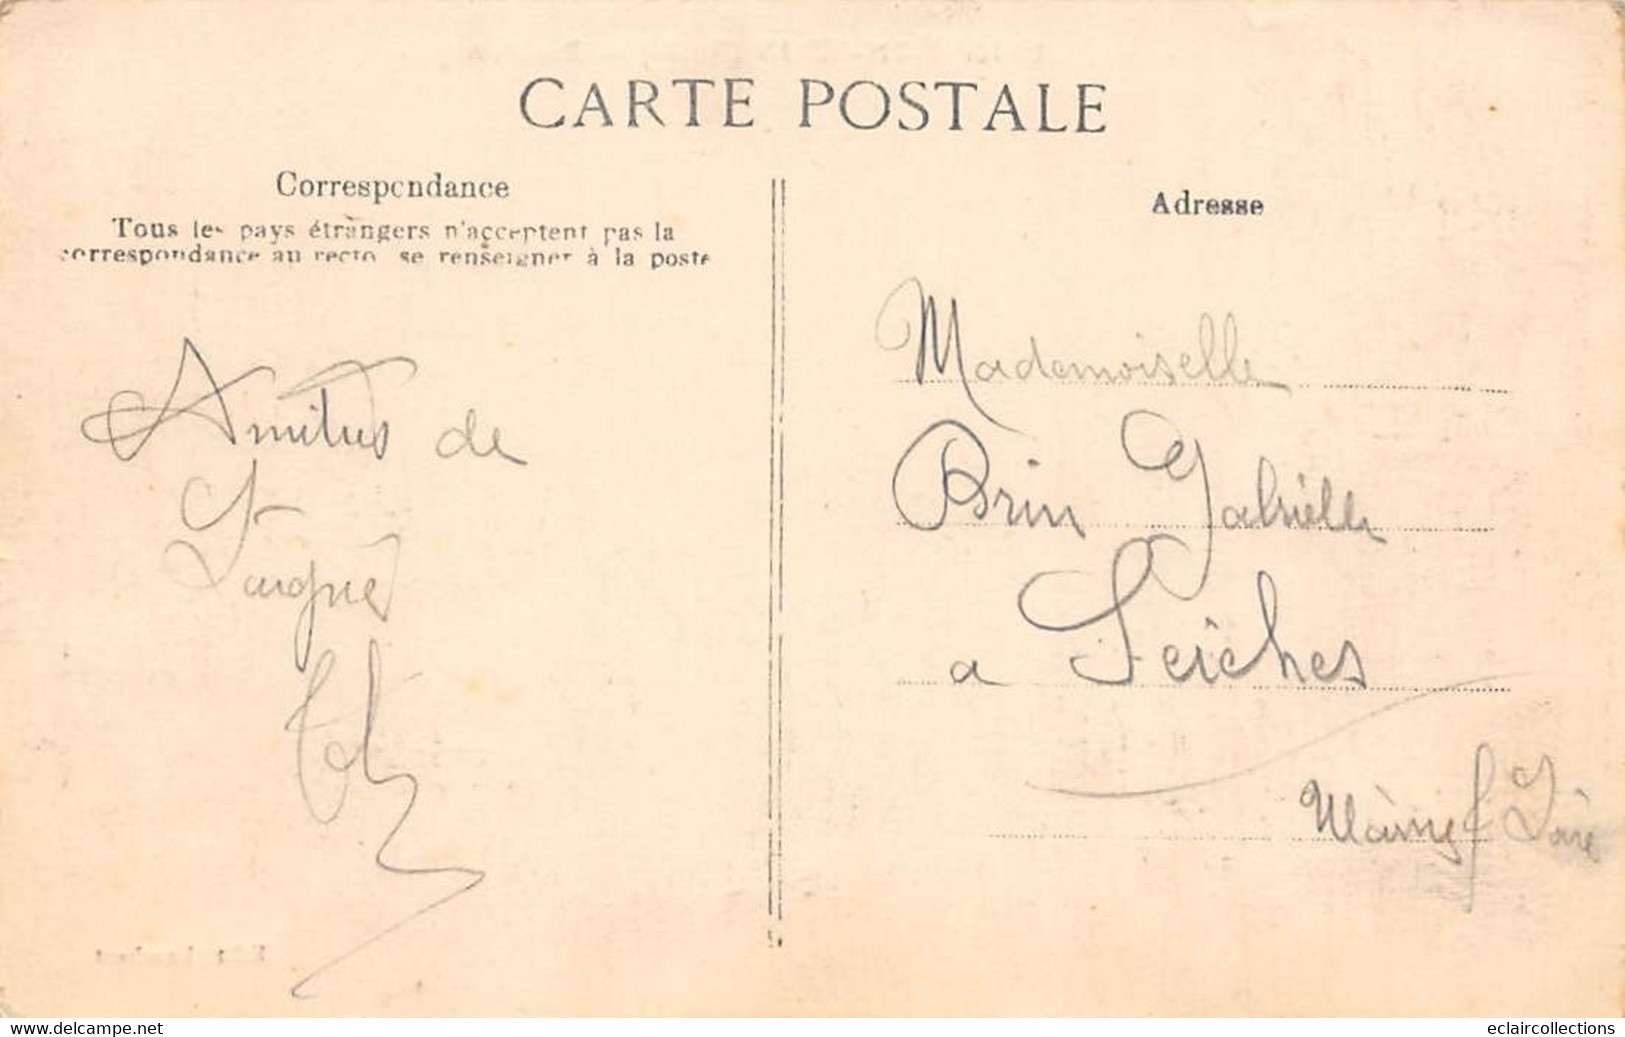 CARTE POSTALE
Correspondance
Tous les pays étrangers n'acceptent pas la
correspondance au recto, se renseigner à la poste
Adresse
Amitus de
Laigné
Mademoiselle
Brin Gabrielle
a Seiches
Maine f Loire
www.delcampe.net
eclaircollections